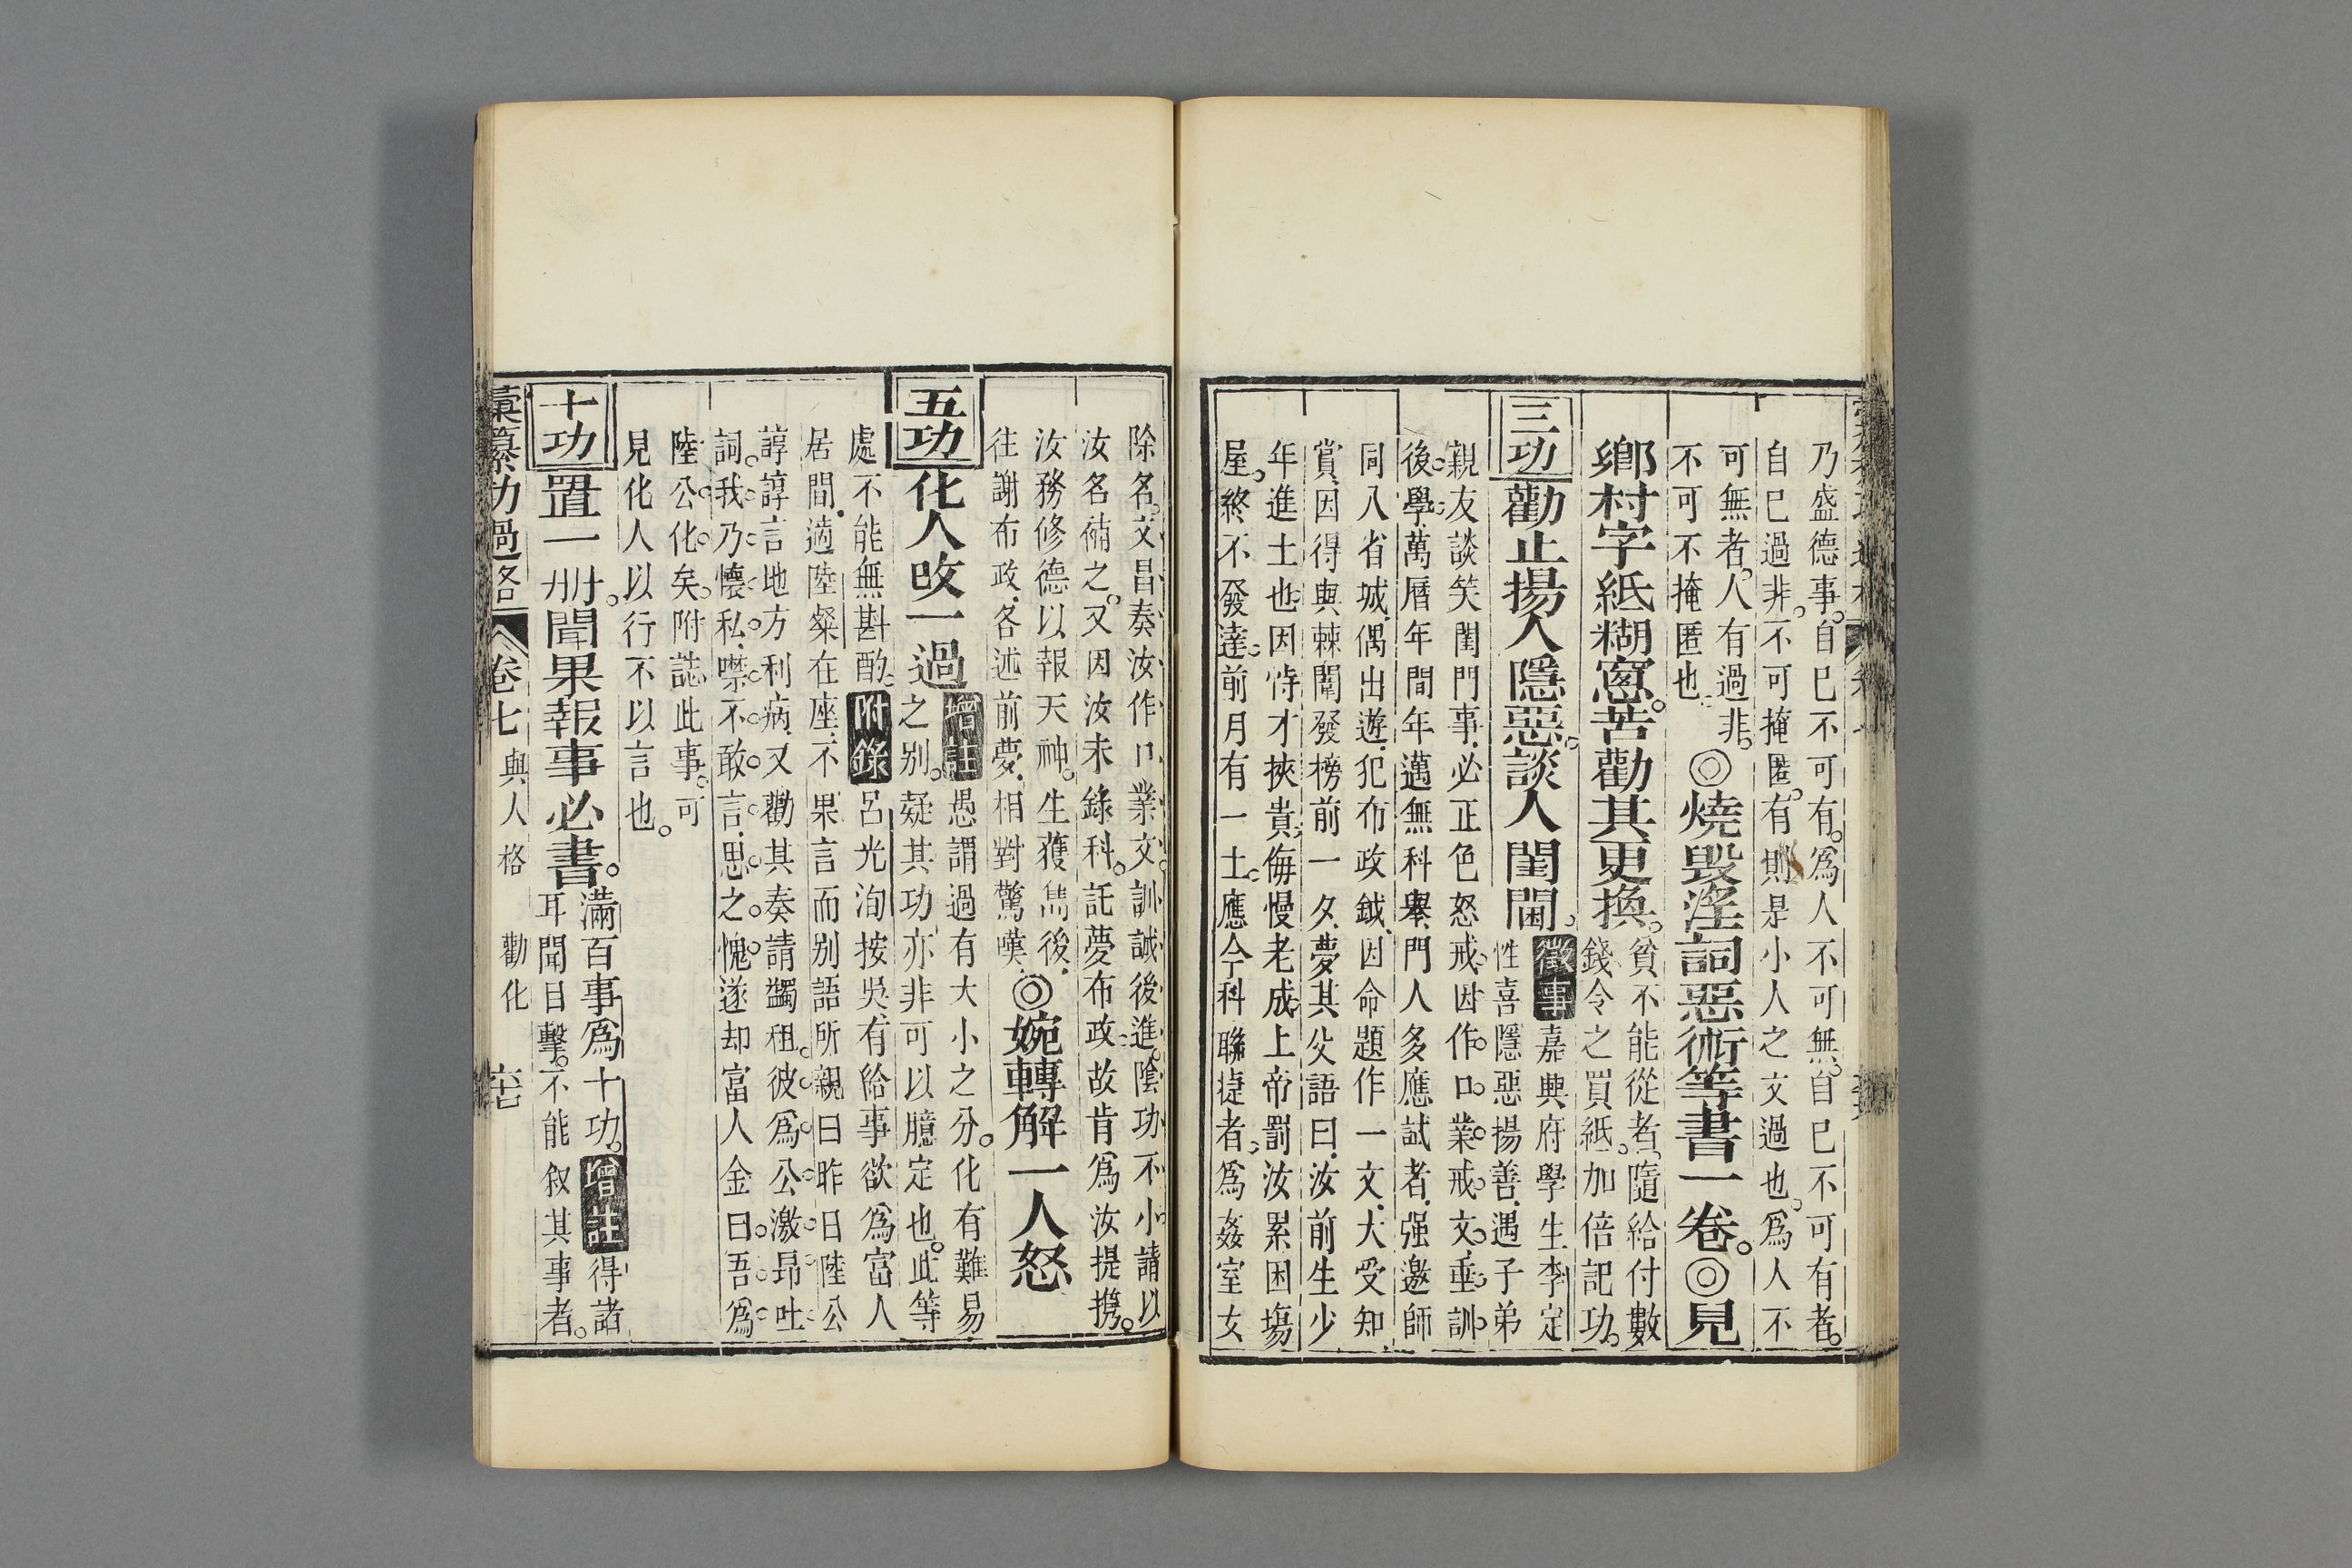 乃盛德事。自巳不可有。爲人不可無。自巳不可有者。
自巳過非。不可掩匿。有則是小人之文過也。爲人不
可無者。人有過非。
不可不掩匿也。
◎燒毀淫詞惡術等書一卷。◎見
鄉村字紙糊窓。苦勸其更換。
貧不能從者。隨給付數
錢令之買紙。加倍記功。
三功
勸止揚人隱惡。談人閨閫。
徵事
嘉興府學生李定
性喜隱惡揚善。遇子弟
親友談笑閨門事。必正色怒戒。因作口業戒文。垂訓
後學。萬曆年間年邁無科舉。門人多應試者。强邀師
同入省城。偶出遊。犯布政鉞。因命題作一文。大受知
賞。因得與棘闈發榜前一夕。夢其父語曰。汝前生少
年進士也。因恃才挾貴。侮慢老成。上帝罰汝累困場
屋。終不發達。前月有一士。應今科聯捷者。爲姦室女
除名。文昌奏汝作口業文。訓誡後進。陰功不小。請以
汝名補之。又因汝未錄科。託夢布政。故肯爲汝提携。
汝務修德以報天神。生獲雋後。
往謝布政。各述前夢。相對驚嘆。
◎婉轉解一人怒
五功
化人改一過
增註
愚謂過有大小之分。化有難易
之别。疑其功亦非可以臆定也。此等
處不能無斟酌。
附錄
呂光洵按吳。有給事欲爲富人
居間。適陸粲在座。不果言而别語所親曰。昨日陸公
諄諄言地方利病。又勸其奏請蠲租。彼爲公激昻吐
詞。我乃懷私。噤不敢言。思之愧。遂却富人金曰。吾爲
陸公化矣。附誌此事。可
見化人以行不以言也。
十功
置一册。聞果報事必書。
滿百事爲十功。
增註
得諸
耳聞目擊。不能叙其事者。
彙纂功過格
卷七
與人格
勸化